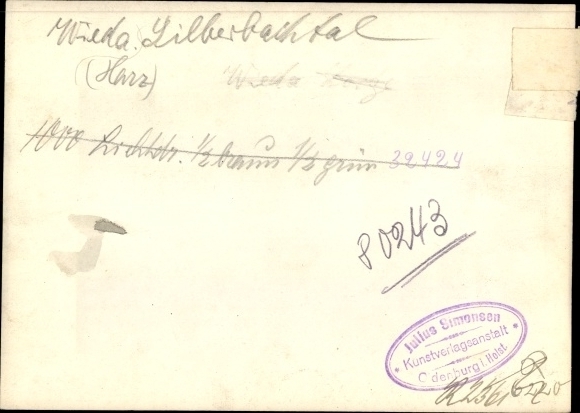 Wieda. Silberbachtal
(Harz) Wieda
1000 Lichtdr. 1/2 braun 1/2 grün 32424
80243
Julius Simonsen
Kunstverlagsanstalt
Oldenburg i. Holst.